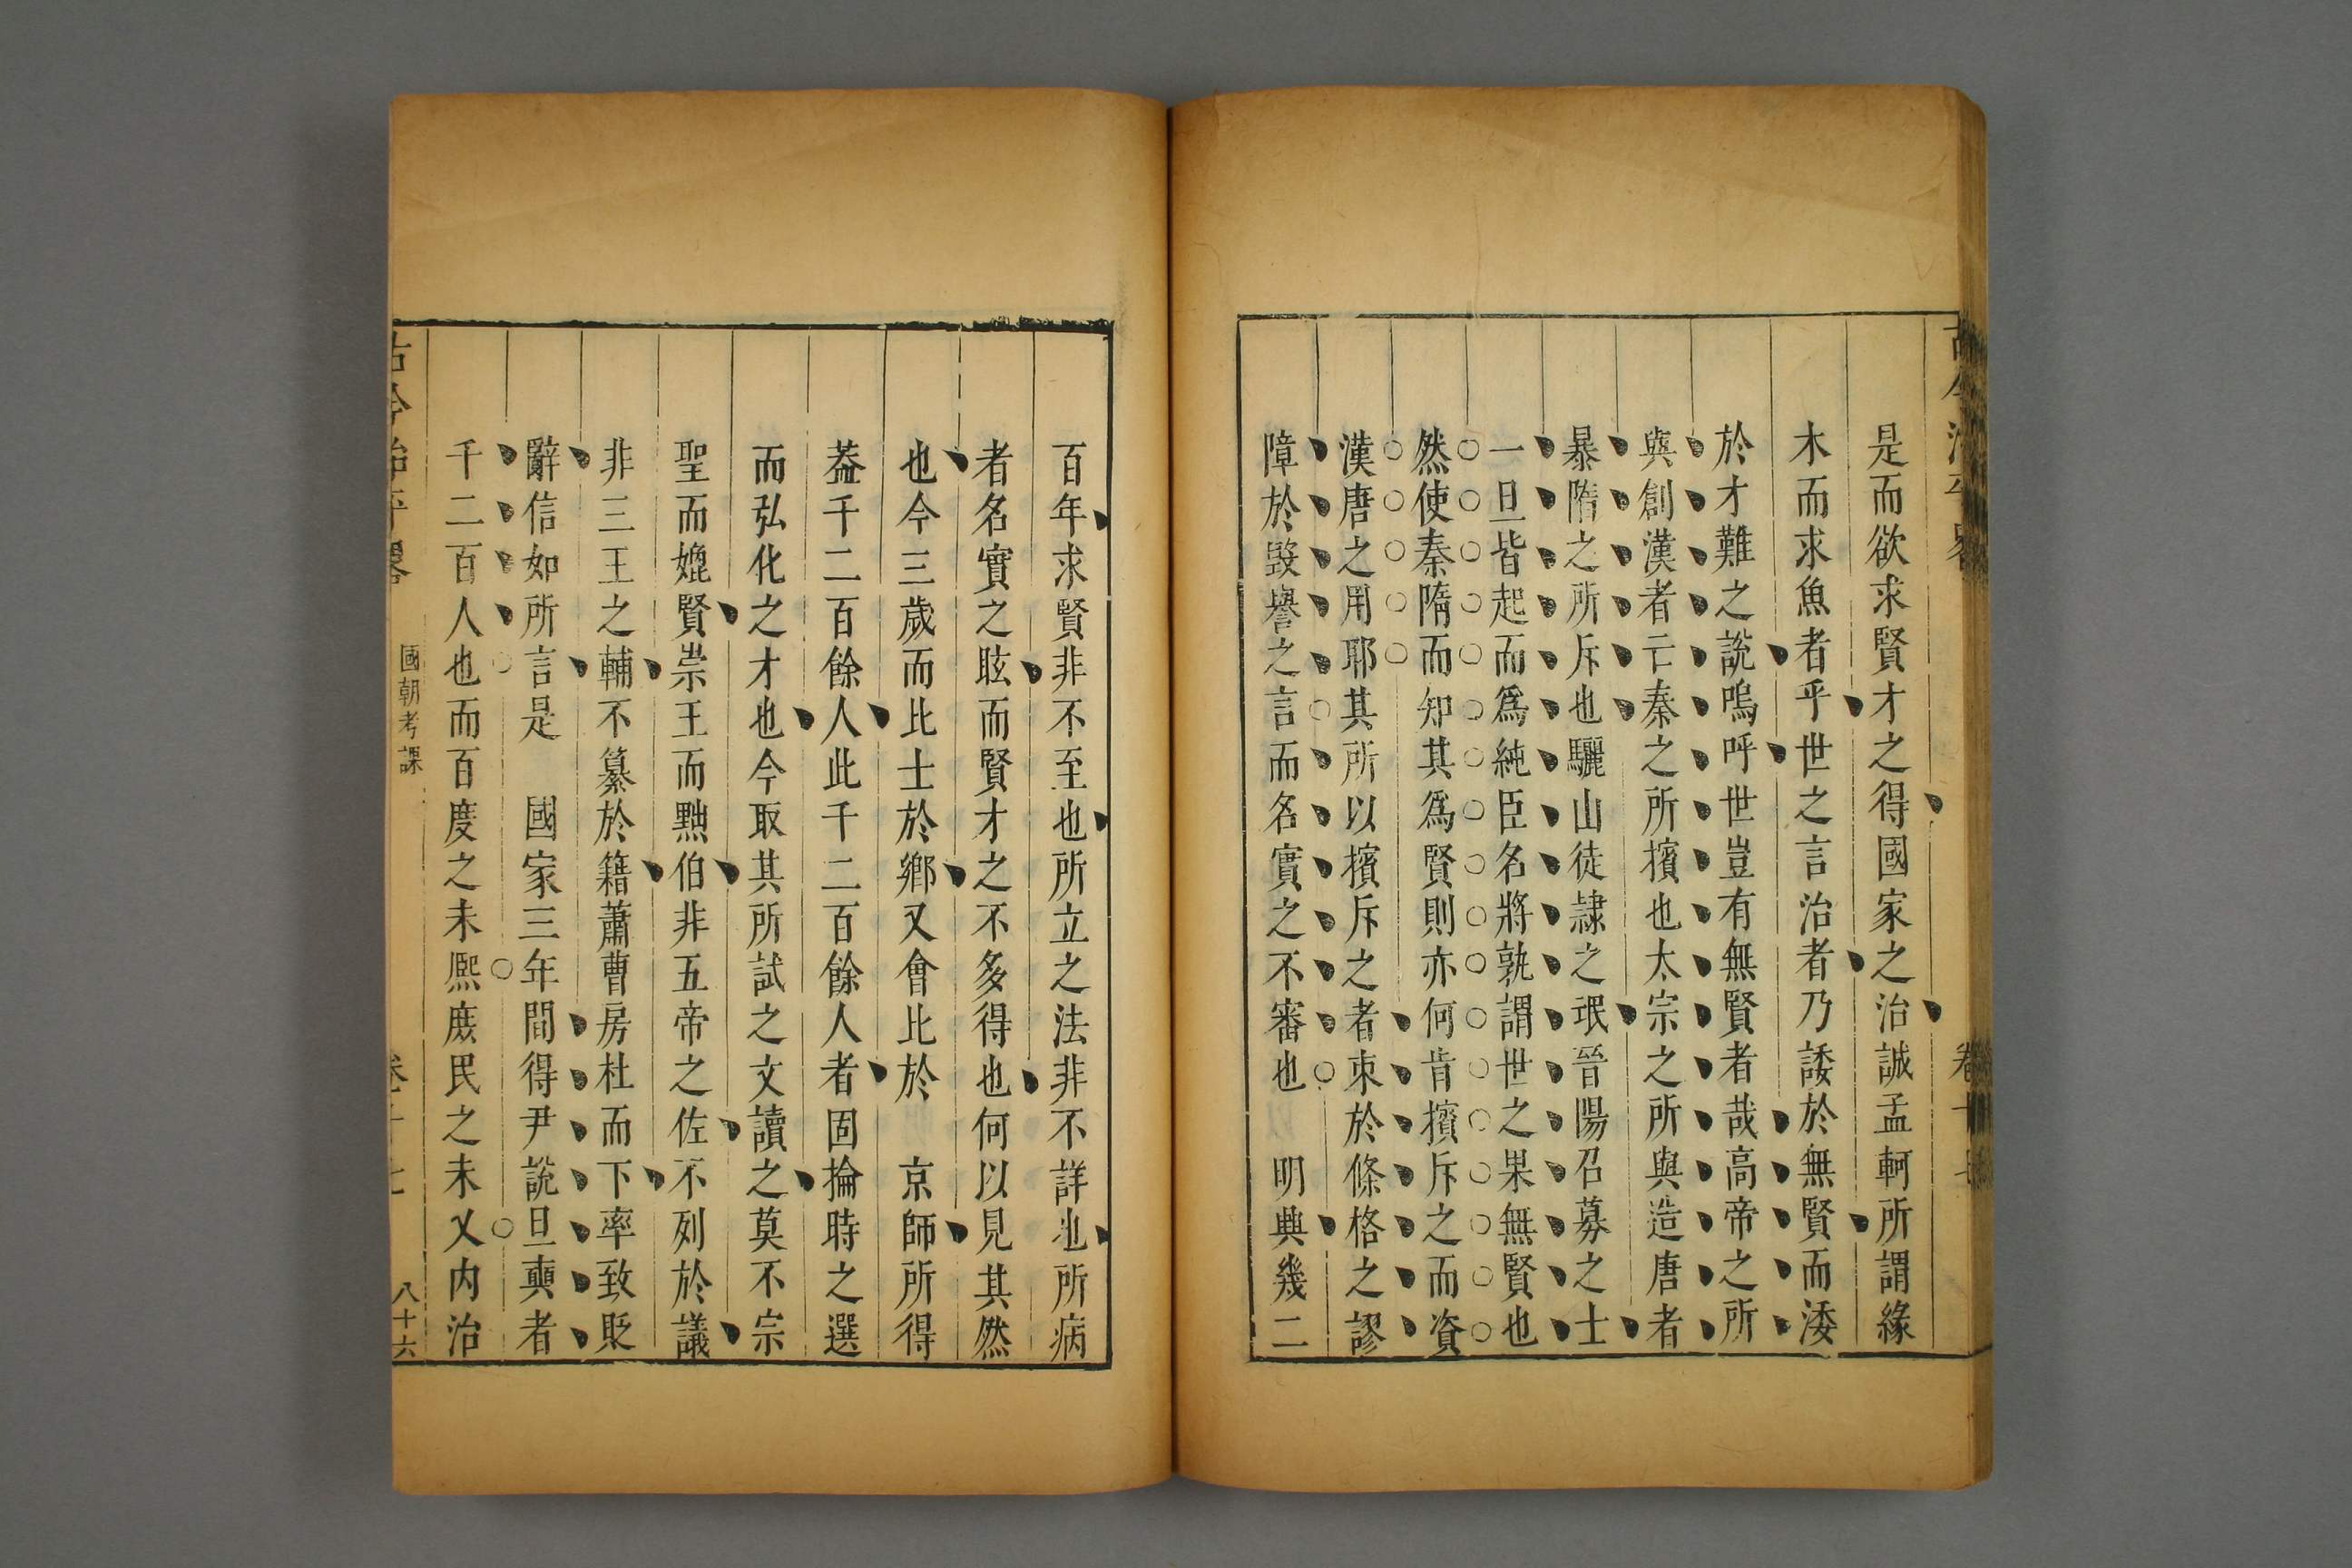 是而欲求賢才之得國家之治誠孟軻所謂緣
木而求魚者乎世之言治者乃諉於無賢而湲
於才難之說嗚呼世豈有無賢者哉高帝之所
與創漢者亡秦之所擯也太宗之所與造唐者
暴隋之所斥也驪山徒隸之氓晉陽召募之士
一旦皆起而爲純臣名將孰謂世之果無賢也
然使秦隋而知其爲賢則亦何肯擯斥之而資
漢唐之用耶其所以擯斥之者束於條格之謬
障於毀譽之言而名實之不審也　明興幾二
百年求賢非不至也所立之法非不詳也所病
者名實之眩而賢才之不多得也何以見其然
也今三歲而比士於鄉又會比於　京師所得
葢千二百餘人此千二百餘人者固掄時之選
而弘化之才也今取其所試之文讀之莫不宗
聖而媲賢崇王而黜伯非五帝之佐不列於議
非三王之輔不纂於籍蕭曹房杜而下率致貶
辭信如所言是　國家三年間得尹說旦奭者
千二百人也而百度之未熈庶民之未乂内治
古今治平畧
國朝考課
卷十七
八十六